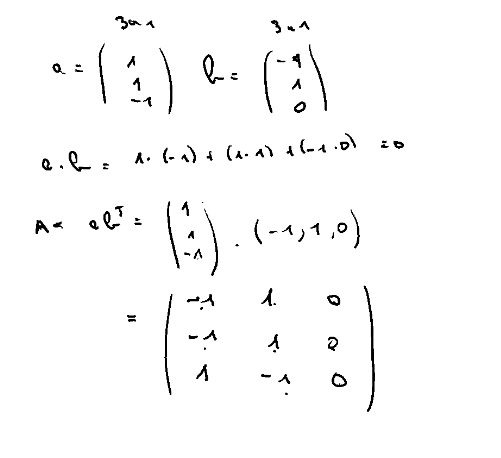 3x1 3x1
a = ( 1 1 -1 ) b = ( -1 1 0 )
a . b = 1 . (-1) + (1 . 1) + (-1 . 0) = 0
A = ab^T = ( 1 1 -1 ) . (-1, 1, 0)
= ( -1 1 0
-1 1 0
1 -1 0 )